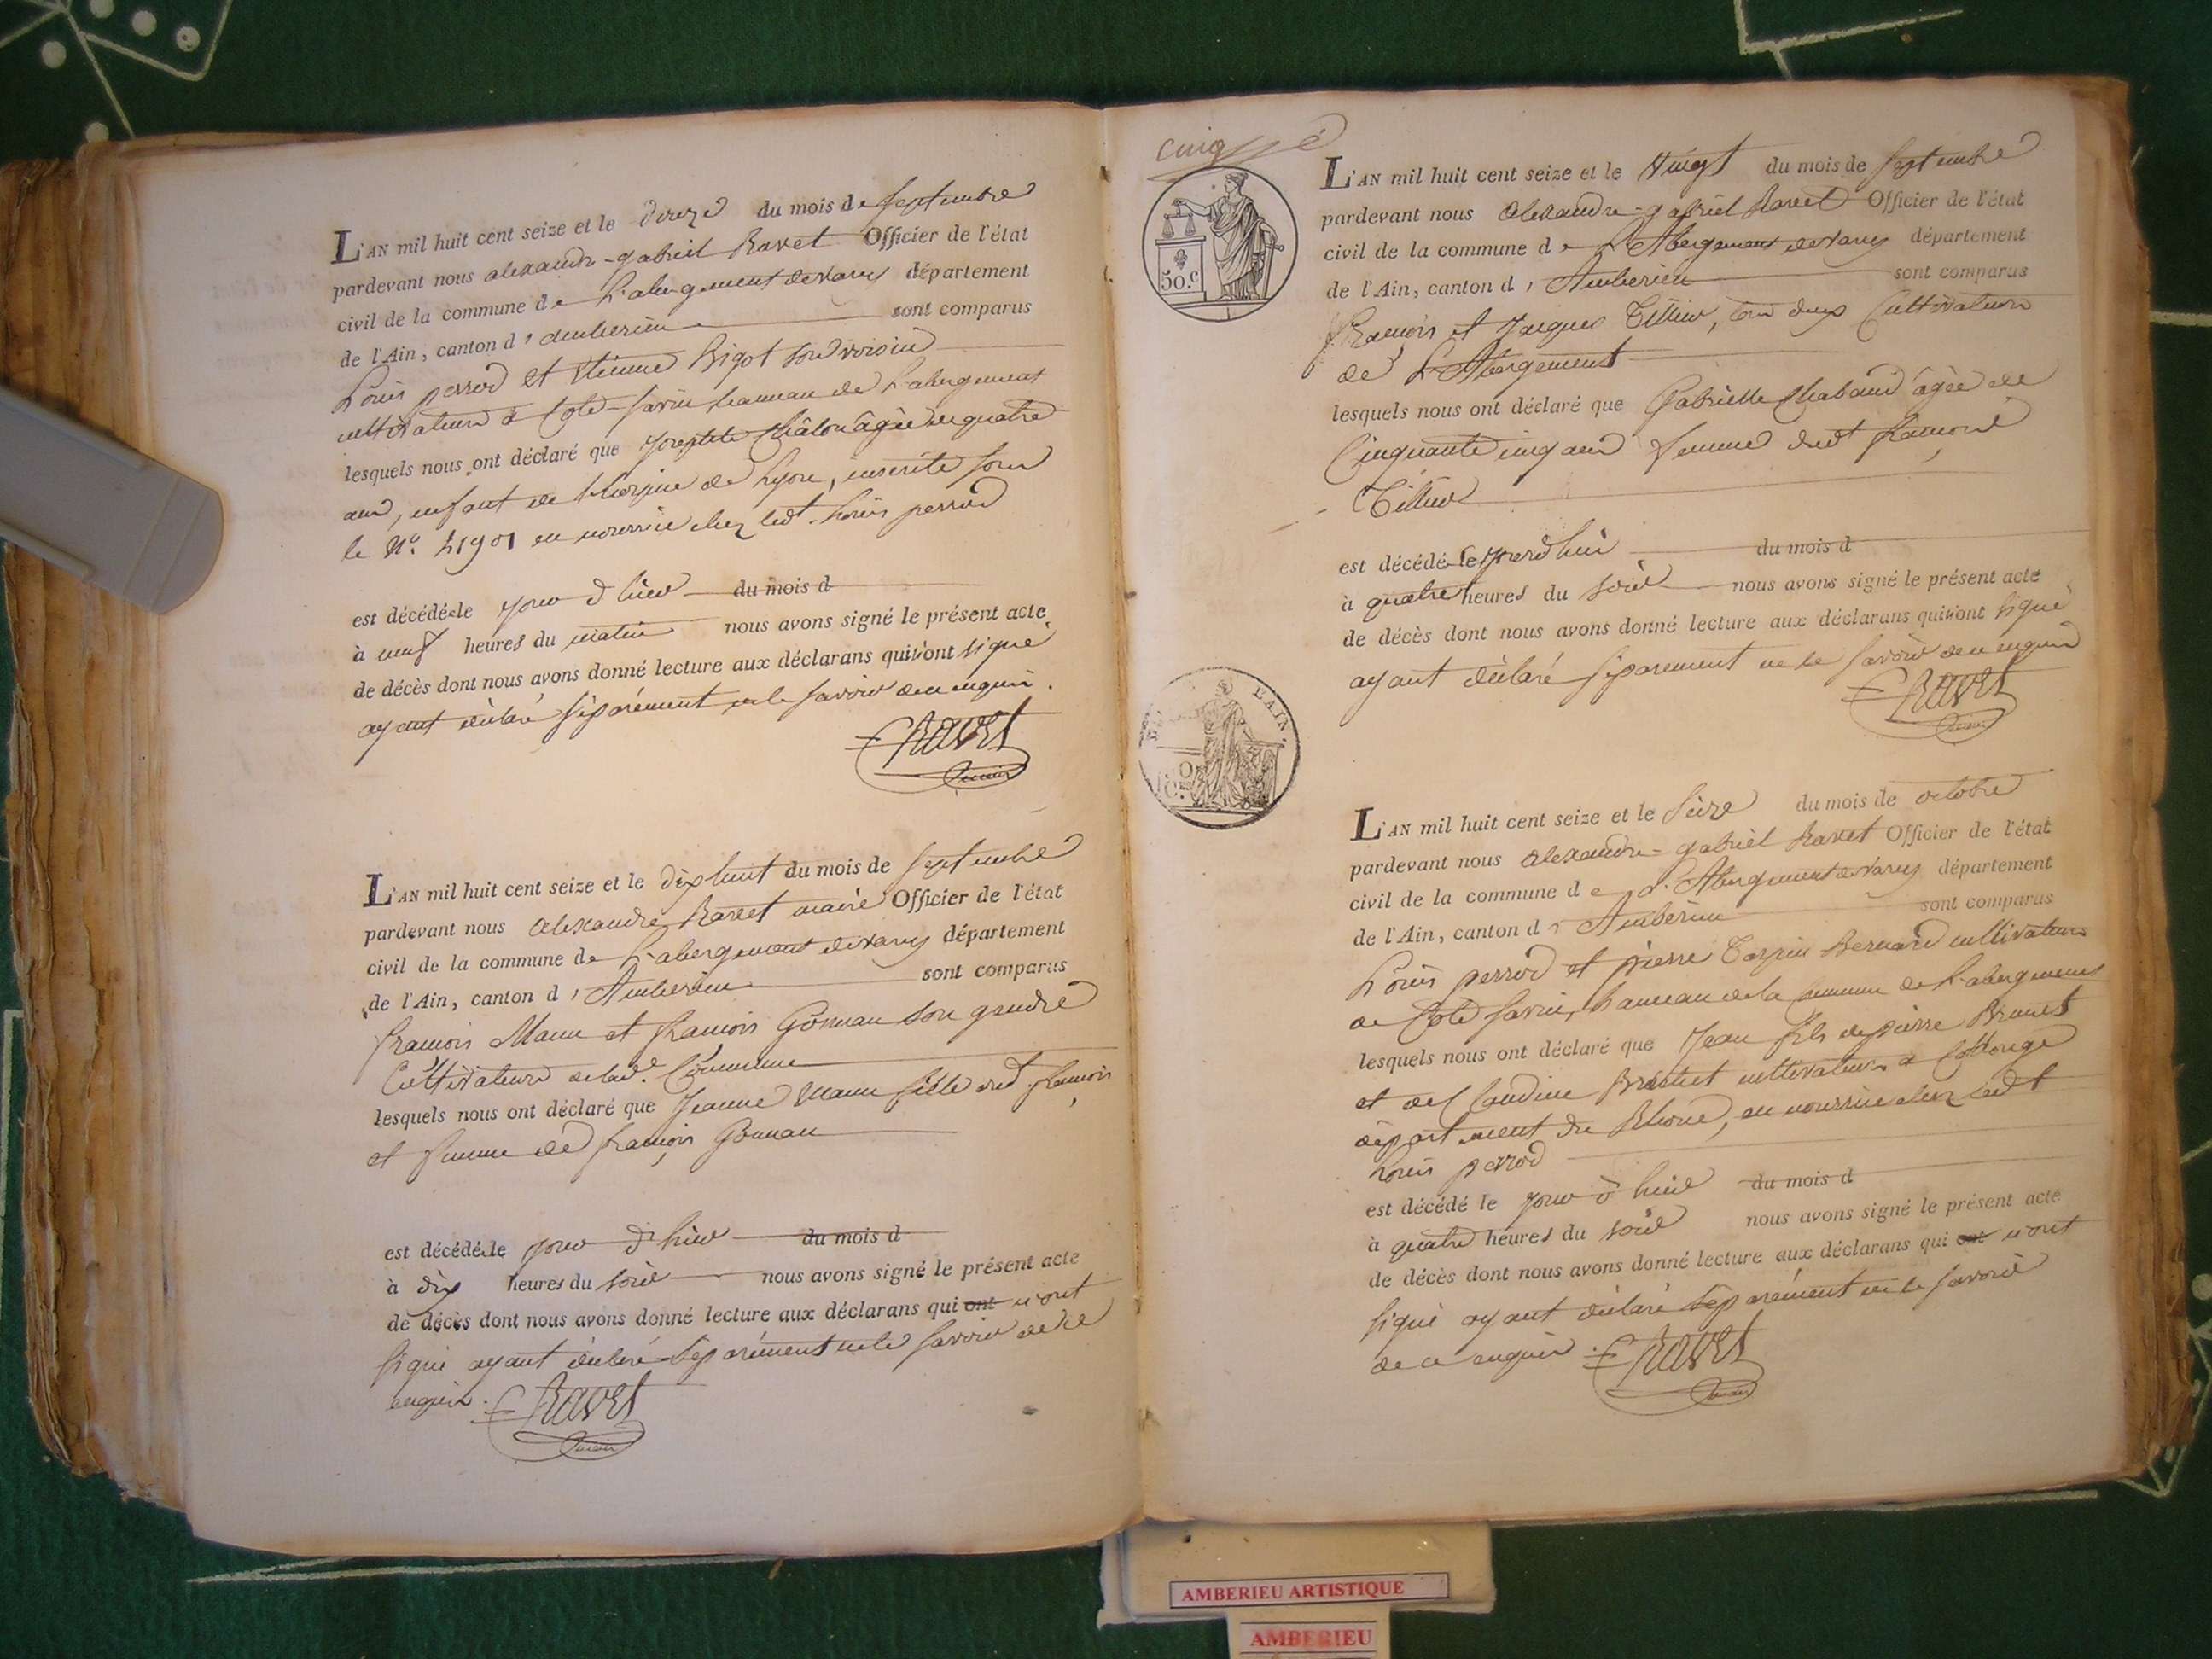 L'AN mil huit cent seize et le douze du mois de septembre
pardevant nous alexandre-gabriel Ravet Officier de l'état
civil de la commune de L'abergement devarey département
de l'Ain, canton d'amberieu sont comparus
Louis perrod et Etienne Bigot son voisin
cultivateurs à Coté-savin hameau de L'abergement
lesquels nous ont déclaré que Châlon âgée de quatre
ans, enfant de l'hospice de Lyon, inscrite sous
le N°. en nourrice chez ledt. Louis perrod
est décédée le jour d'hier du mois d
à neuf heures du matin nous avons signé le présent acte
de décès dont nous avons donné lecture aux déclarans qui n'ont signé
ayant déclaré séparément ne le savoir de ce enquis.
Ravet
maire
L'AN mil huit cent seize et le dixhuit du mois de septembre
pardevant nous Alexandre Ravet maire Officier de l'état
civil de la commune de L'abergement devarey département
de l'Ain, canton d'Amberieu sont comparus
françois Mann et françois Gonnan son gendre
Cultivateurs de lad.e Commune
lesquels nous ont déclaré que Jeanne Mann fille dudt françois
et femme de françois Gonnan
est décédée le jour d'hier du mois d
à dix heures du soir nous avons signé le présent acte
de décès dont nous avons donné lecture aux déclarans qui ont n'ont
signé ayant déclaré séparément ne le savoir de ce
enquis. Ravet
maire
cinq
50.c
L'AN mil huit cent seize et le Vingt du mois de septembre
pardevant nous Alexandre-gabriel Ravet Officier de l'état
civil de la commune de L'Abergement devarey département
de l'Ain, canton d'Amberieu sont comparus
françois et Jacques Tillier, tous deux Cultivateurs
de L'Abergement
lesquels nous ont déclaré que Gabrielle Chabaud âgée de
Cinquante cinq ans femme dudt françois
Tillier
est décédée le jourd'hui du mois d
à quatre heures du soir nous avons signé le présent acte
de décès dont nous avons donné lecture aux déclarans qui n'ont signé
ayant déclaré séparement ne le savoir de ce enquis
Ravet
maire
L'AIN.
L'AN mil huit cent seize et le seize du mois de octobre
pardevant nous Alexandre-gabriel Ravet Officier de l'état
civil de la commune de L'Abergement devarey département
de l'Ain, canton d'Amberieu sont comparus
Louis perrod et pierre Carrin Bernard cultivateurs
de Coté savin, hameau de la commune de L'abergement
lesquels nous ont déclaré que Jean fils de pierre
et de Claudine cultivateurs à Collonge
département du Rhone, en nourrice chez ledt
Louis perrod
est décédé le jour d'hier du mois d
à quatre heures du soir nous avons signé le présent acte
de décès dont nous avons donné lecture aux déclarans qui ont n'ont
signé ayant déclaré séparément ne le savoir
de ce enquis. Ravet
maire
AMBERIEU ARTISTIQUE
AMBERIEU